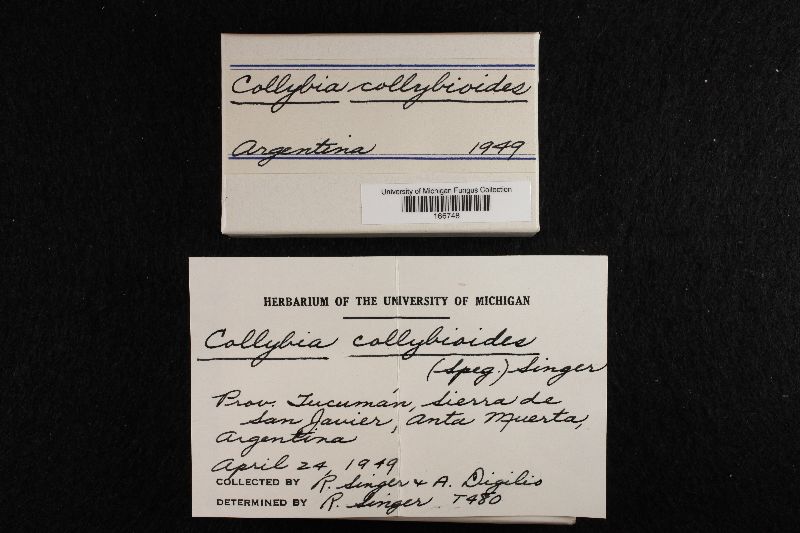 Collybia collybioides
Argentina 1949
University of Michigan Fungus Collection
166748
HERBARIUM OF THE UNIVERSITY OF MICHIGAN
Collybia collybioides
(Speg.) Singer
Prov. Tucumán, Sierra de
San Javier, Anta Muerta,
Argentina
April 24, 1949
COLLECTED BY R. Singer & A. Digilio
DETERMINED BY R. Singer T480